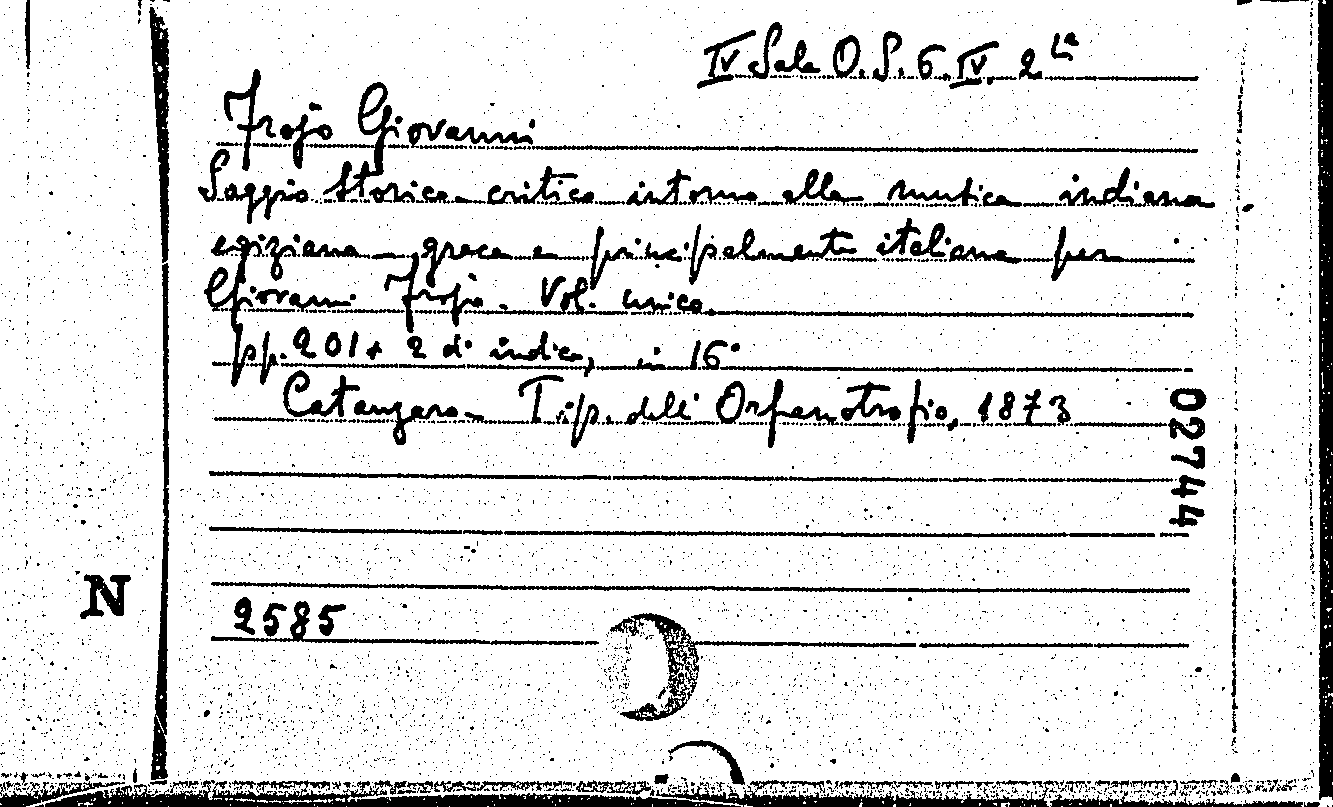 IV Sala O.S. 6. IV. 2 La
Trojo Giovanni
Saggio storico-critico intorno alla musica indiana
egiziana - greca e principalmente italiana per
Giovanni Trojo. Vol. unico.
pp. 201+ 2 di indice, in 16°
Catanzaro - Tip. dell' Orfanotrofio, 1873
02744
N
2585